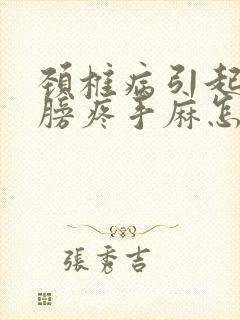 颈椎病引起
膀疼手麻怎
張秀吉